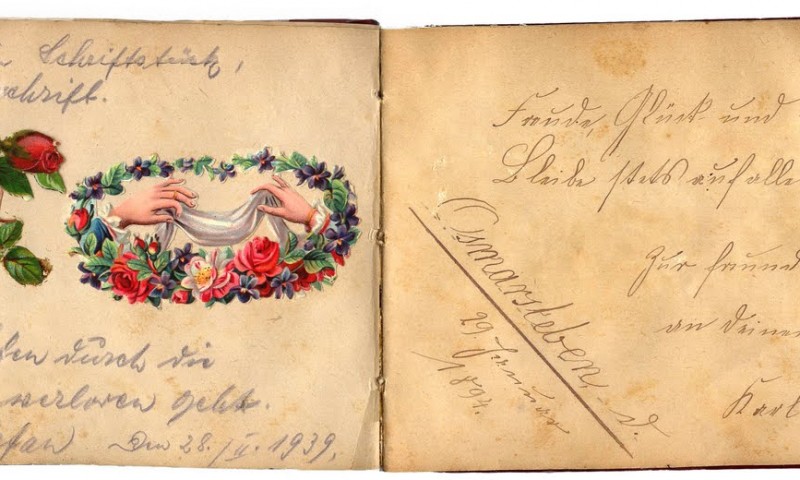 Schriftstück,
schrift.
den durch die
verloren geht.
Den 28. II. 1939.
Freude, Glück und
Bleibe stets auf alle
Zur freund
an Deinen
Karl
Osmarsleben, d.
29. Januar
1892.